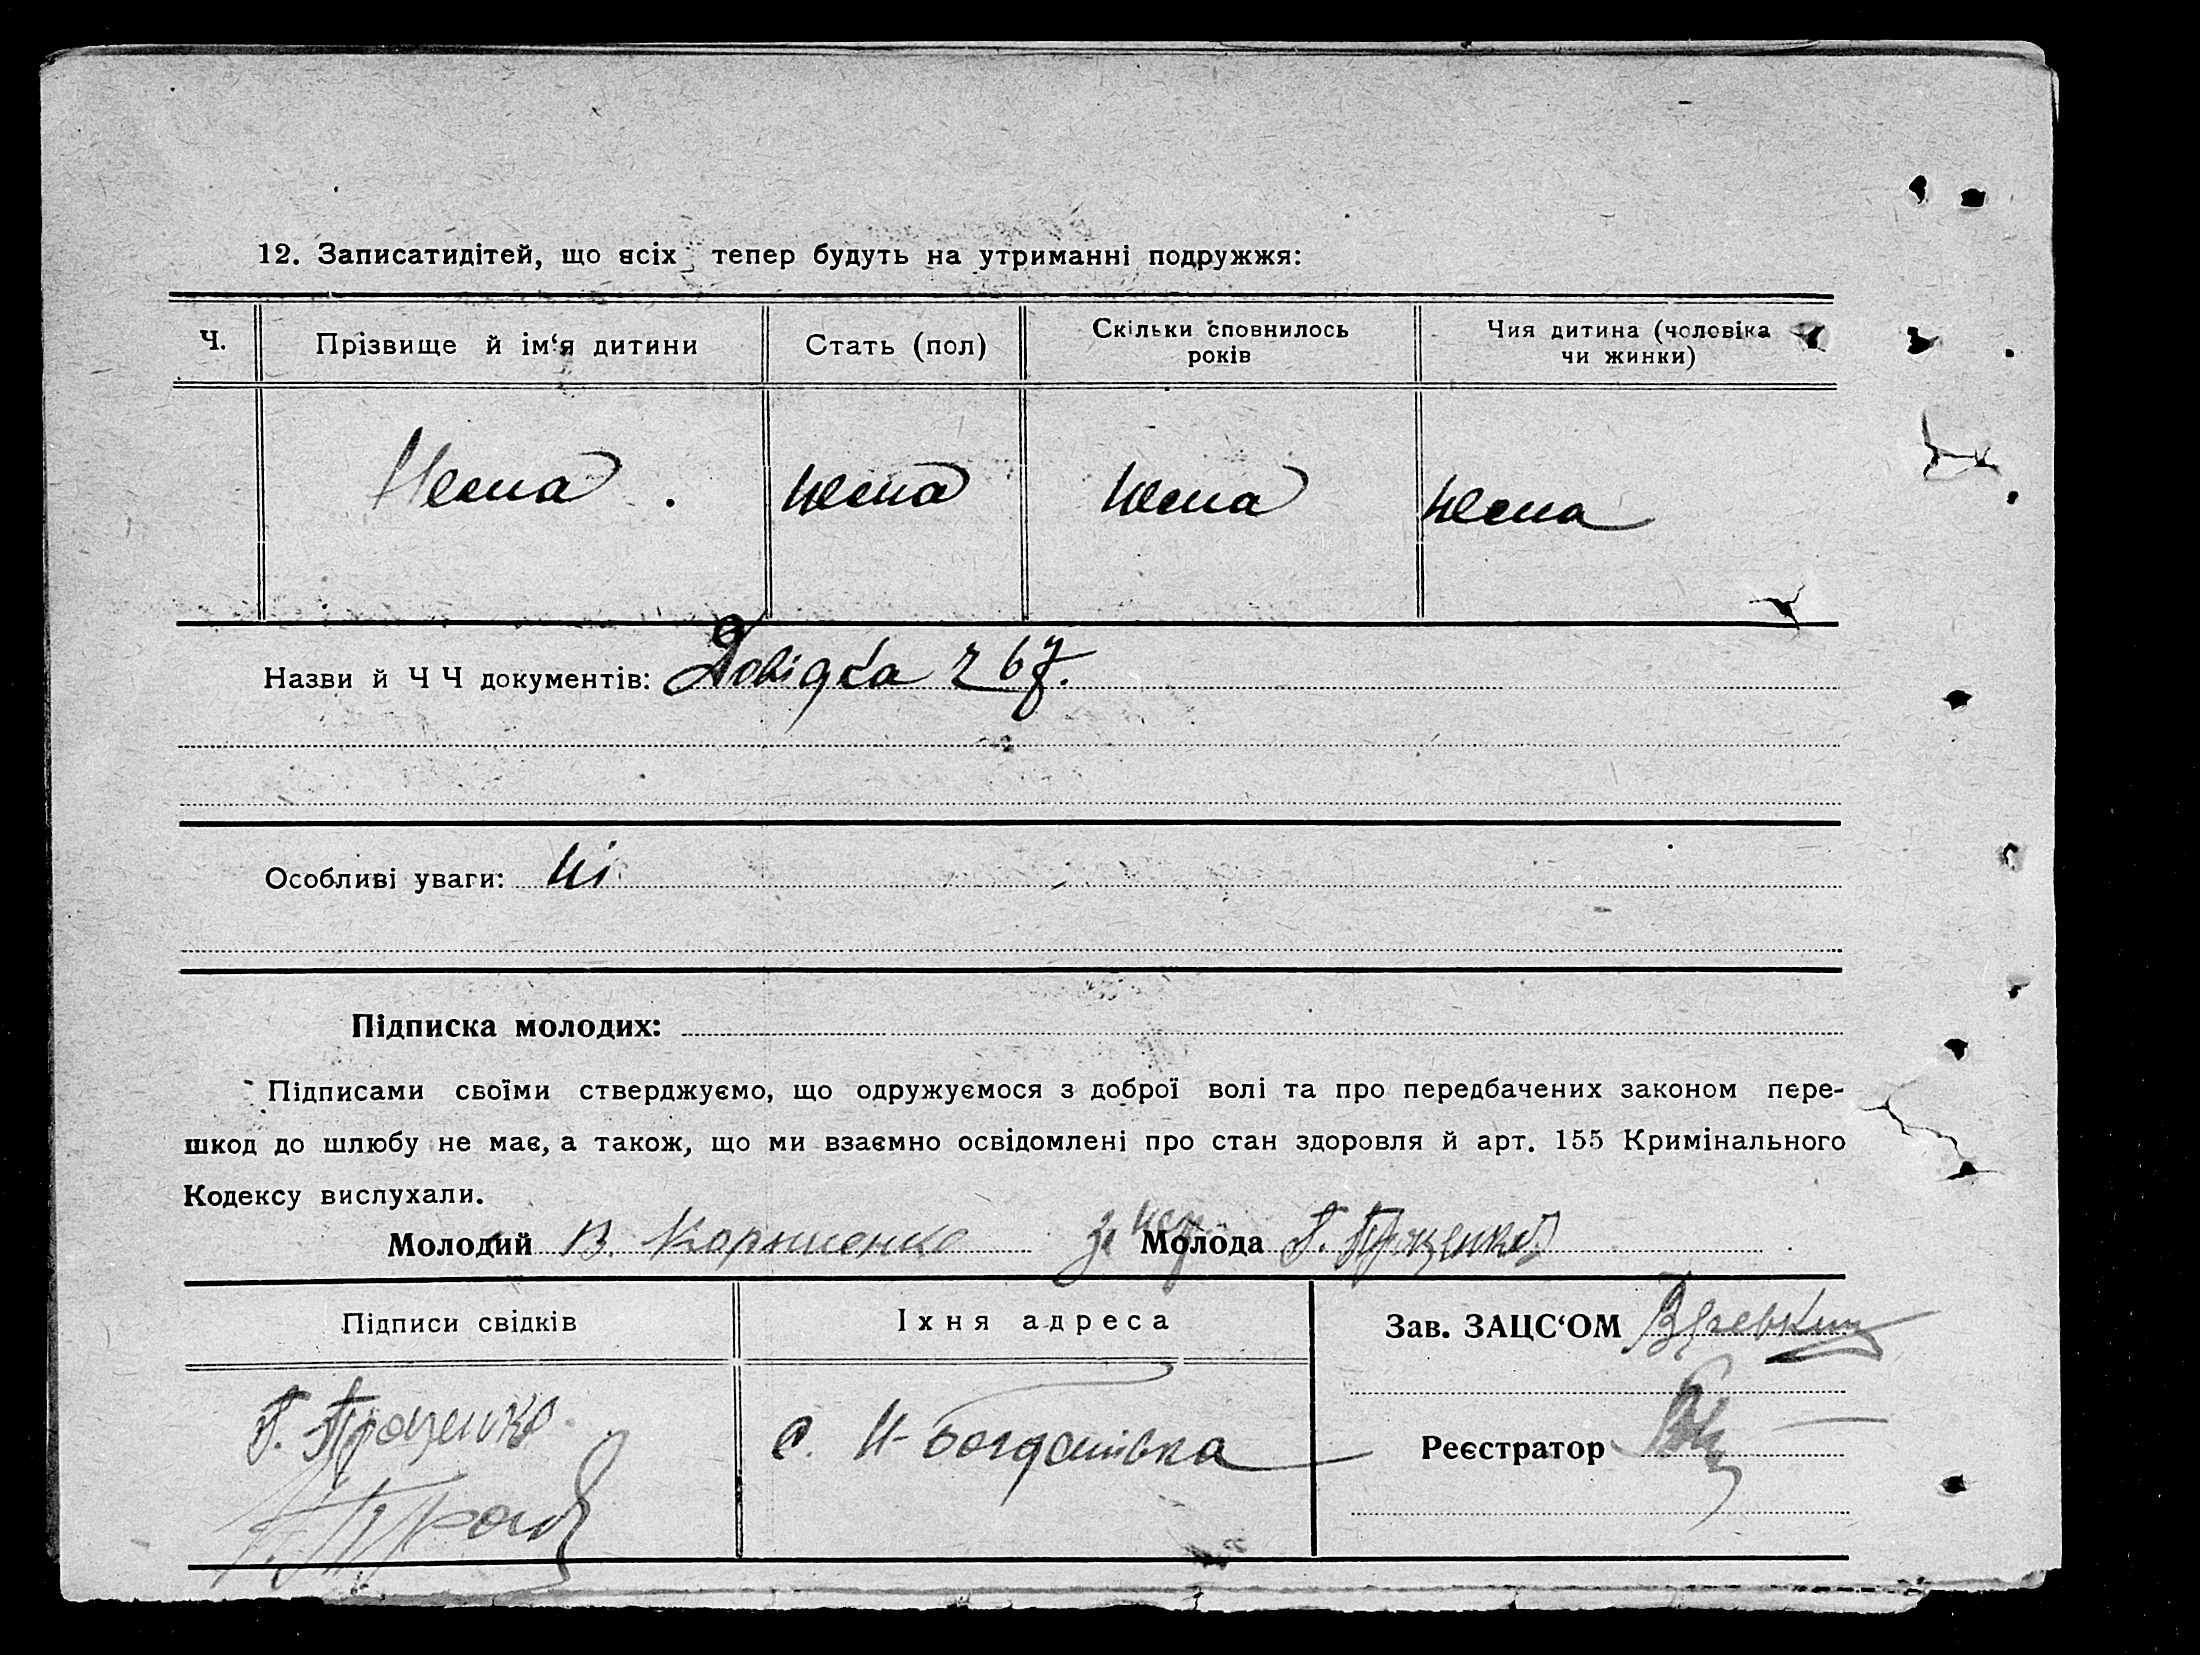 12. Записатидітей, що всіх тепер будуть на утриманні подружжя:
Ч.
Прізвище й ім‘я дитини
Стать (пол)
Скільки сповнилось
років
Чия дитина (чоловіка
чи жинки)
Нема . нема нема нема
Назви й Ч Ч документів: Довідка 2 67.
Особливі уваги: Ні
Підписка молодих:
Підписами своїми стверджуємо, що одружуємося з доброї волі та про передбачених законом пере-
шкод до шлюбу не має, а також, що ми взаємно освідомлені про стан здоровля й арт. 155 Кримінального
Кодексу вислухали.
Молодий В. Корниенко за Молода Г. Проценко
Підписи свідків
Іхня адреса
Зав. ЗАЦС‘ОМ
Г. Проценко
с. Н-Богданівка
Реєстратор